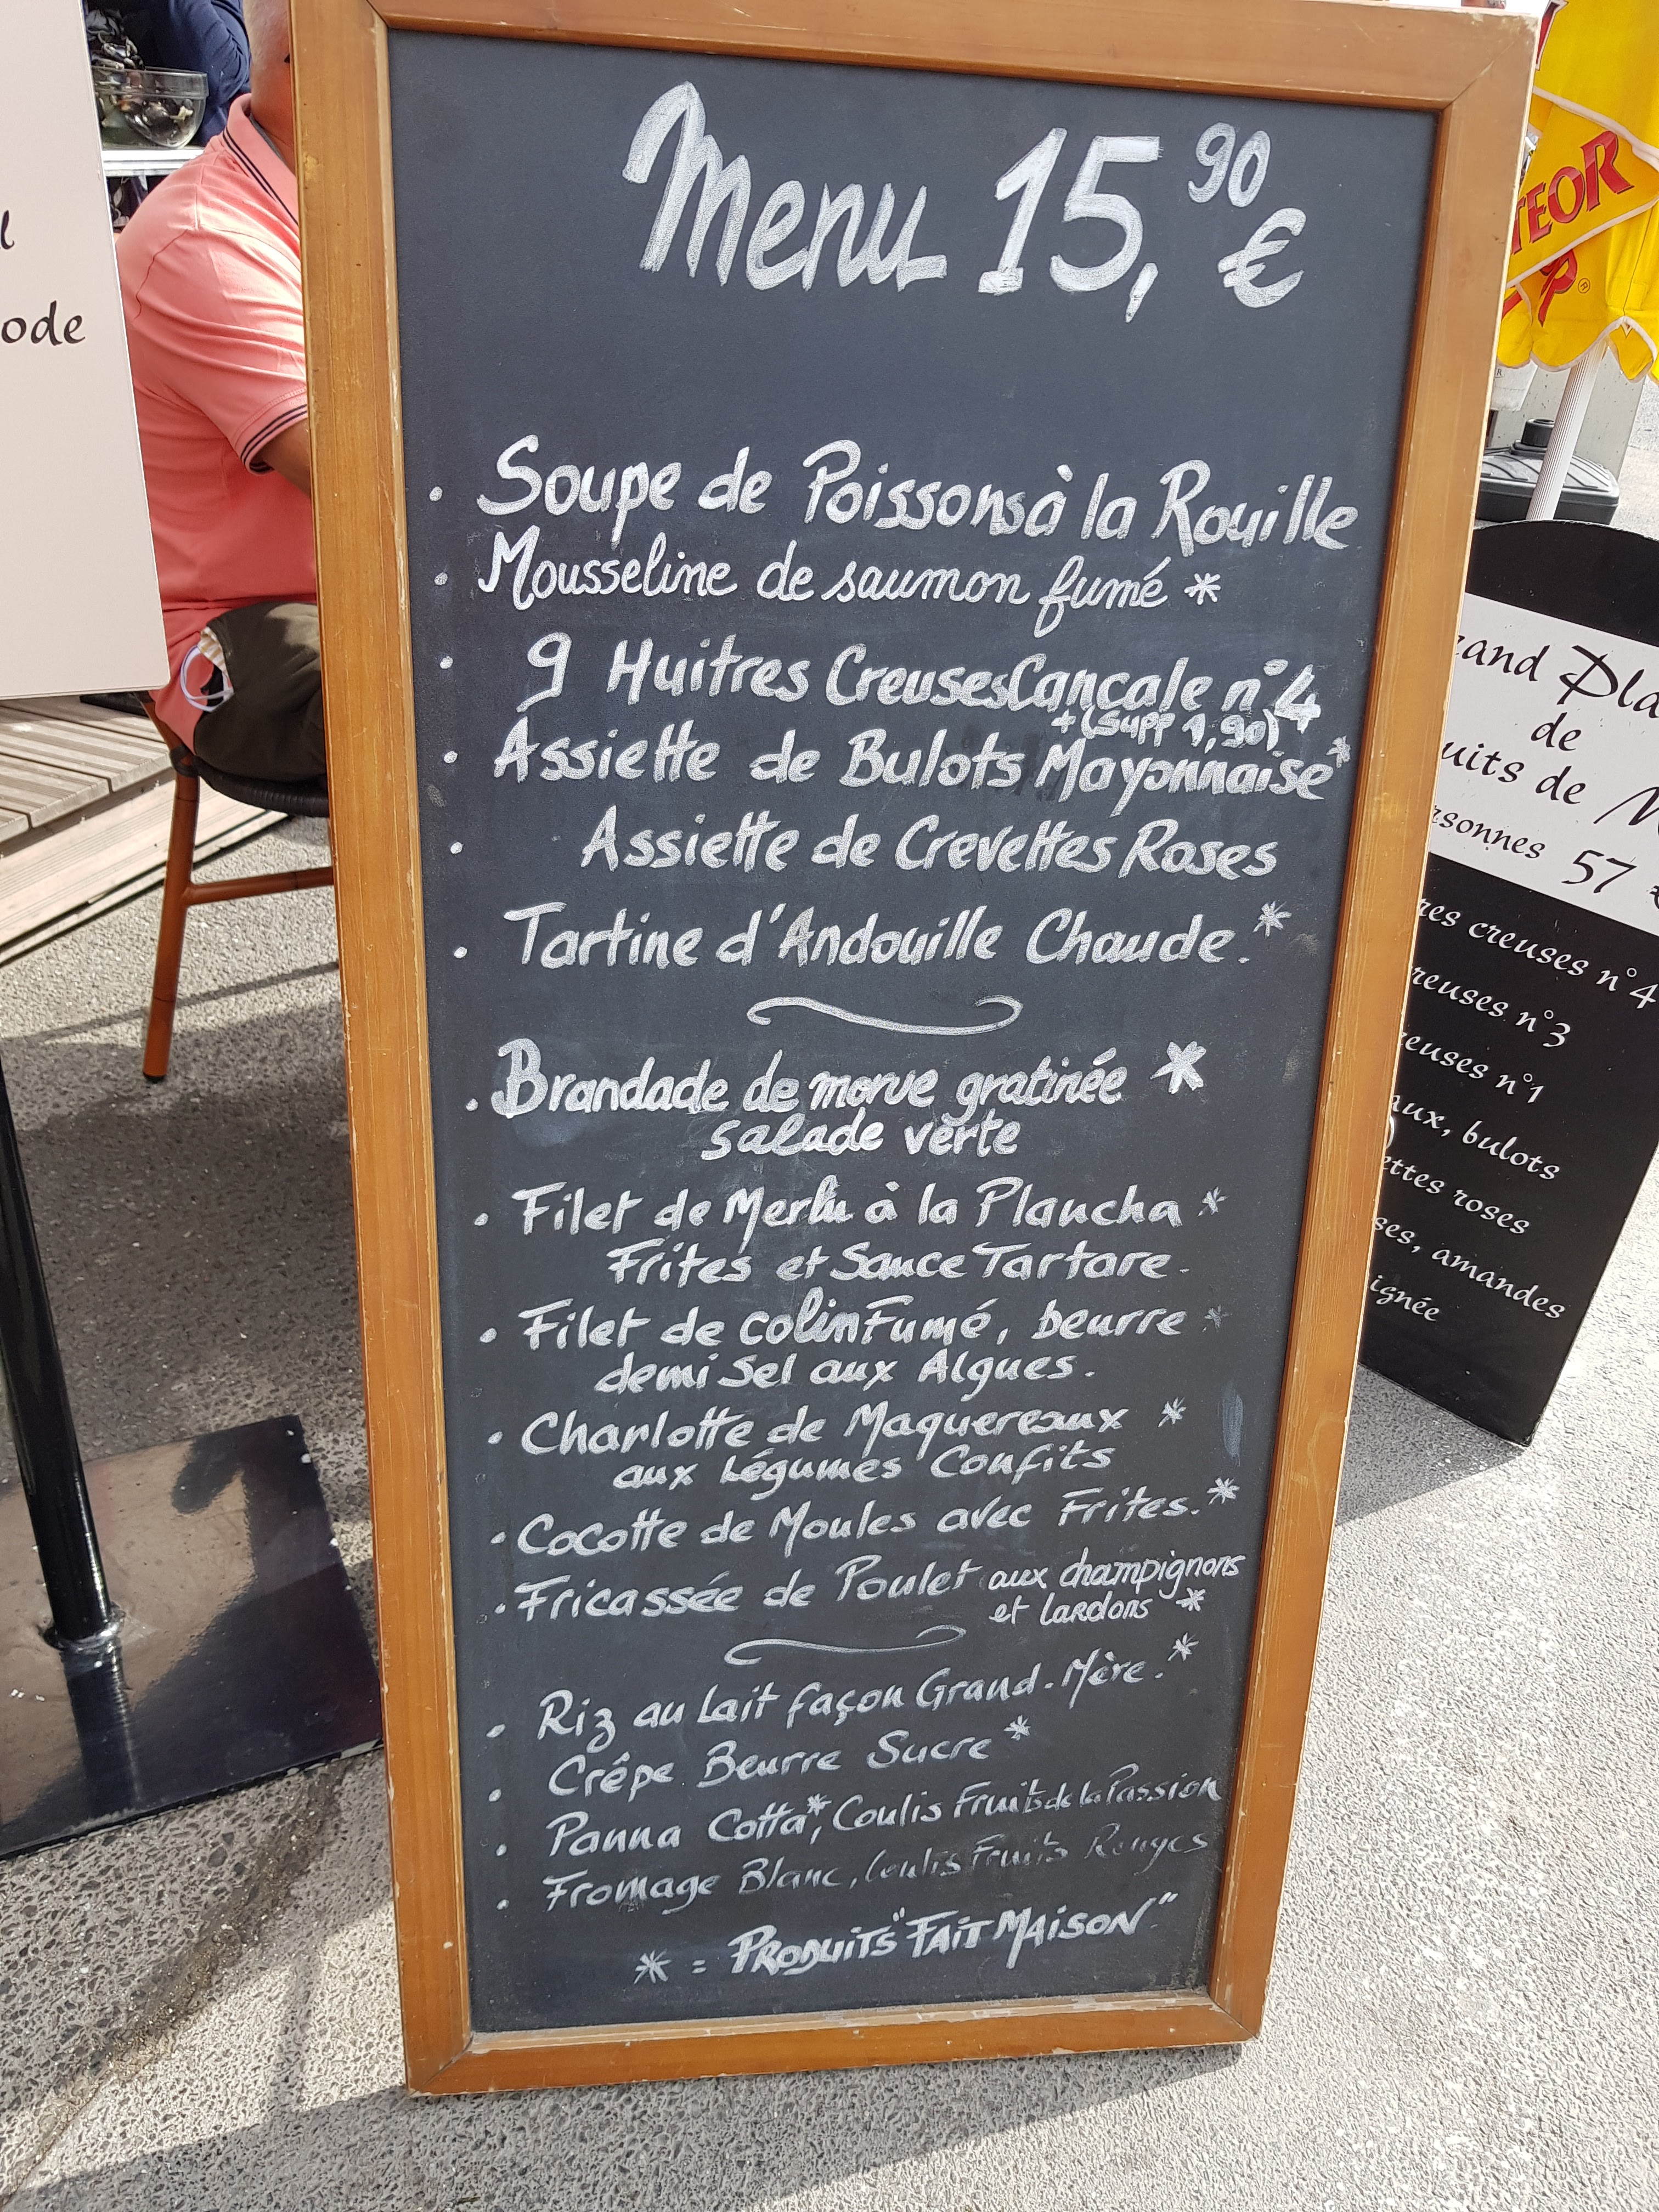 Menu 15,90 €
. Soupe de Poissons à la Rouille
. Mousseline de saumon fumé *
. 9 Huitres Creuses Cancale n°4
+(supp 1,90)
. Assiette de Bulots Mayonnaise*
. Assiette de Crevettes Roses
. Tartine d'Andouille Chaude.*
. Brandade de morue gratinée *
salade verte
. Filet de Merlu à la Plancha *
Frites et Sauce Tartare.
. Filet de colin Fumé, beurre *
demi Sel aux Algues.
. Charlotte de Maquereaux *
aux Légumes Confits
. Cocotte de Moules avec Frites.*
. Fricassée de Poulet aux champignons
et lardons *
. Riz au Lait façon Grand-Mère.*
. Crêpe Beurre Sucre *
. Panna Cotta*, Coulis Fruits de la Passion
. Fromage Blanc, Coulis Fruits Rouges
* = PRODUITS "FAIT MAISON"
ode
TEOR
de
uits de
rsonnes 57 €
res creuses n°4
reuses n°3
reuses n°1
aux, bulots
ettes roses
ses, amandes
ignée